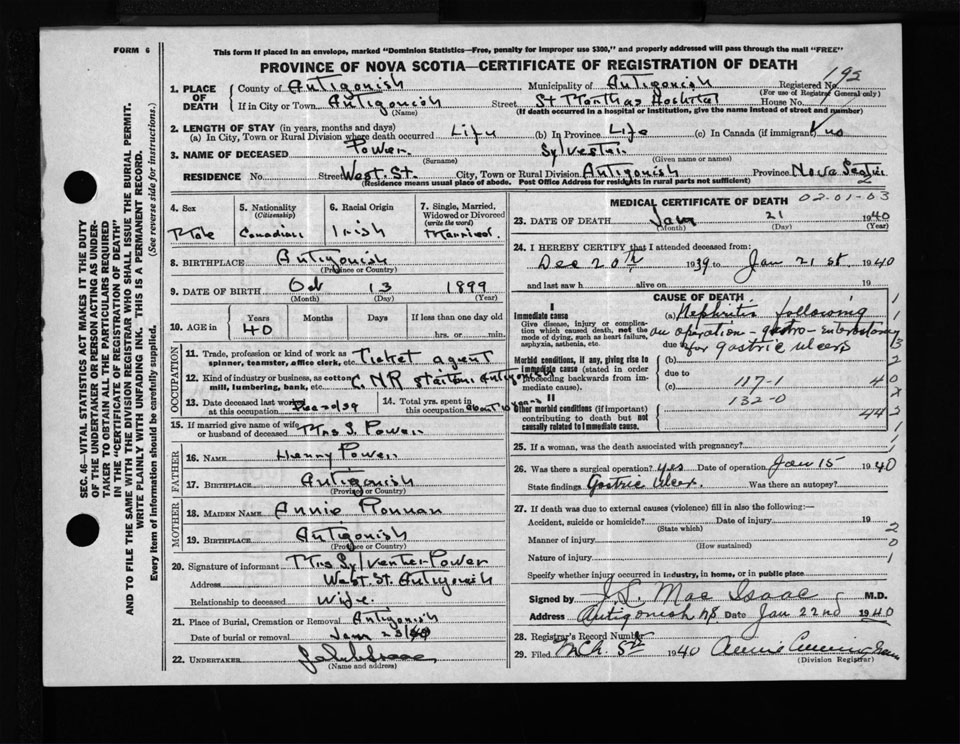 FORM 6
This form if placed in an envelope, marked "Dominion Statistics—Free, penalty for improper use $300," and properly addressed will pass through the mail "FREE"
PROVINCE OF NOVA SCOTIA—CERTIFICATE OF REGISTRATION OF DEATH
192
SEC. 46—VITAL STATISTICS ACT MAKES IT THE DUTY
OF THE UNDERTAKER OR PERSON ACTING AS UNDER-
TAKER TO OBTAIN ALL THE PARTICULARS REQUIRED
IN THE "CERTIFICATE OF REGISTRATION OF DEATH"
AND TO FILE THE SAME WITH THE DIVISION REGISTRAR WHO SHALL ISSUE THE BURIAL PERMIT.
WRITE PLAINLY WITH UNFADING INK. THIS IS A PERMANENT RECORD.
Every item of information should be carefully supplied. (See reverse side for instructions.)
1. PLACE OF DEATH
County of Antigonish Municipality of Antigonish Registered No.
(For use of Registrar General only)
If in City or Town Antigonish Street St Marthas Hospital House No.
(Name) (If death occurred in a hospital or institution, give the name instead of street and number)
2. LENGTH OF STAY (in years, months and days)
(a) In City, Town or Rural Division where death occurred Life (b) In Province Life (c) In Canada (if immigrant) no
3. NAME OF DECEASED Power Sylvester
(Surname) (Given name or names)
RESIDENCE No. Street West. St. City, Town or Rural Division Antigonish Province Nova Scotia
(Residence means usual place of abode. Post Office Address for residents in rural parts not sufficient)
4. Sex
Male
5. Nationality
(Citizenship)
Canadian
6. Racial Origin
Irish
7. Single, Married,
Widowed or Divorced
(write the word)
Married
8. BIRTHPLACE Antigonish
(Province or Country)
9. DATE OF BIRTH Oct 13 1899
(Month) (Day) (Year)
10. AGE in
Years Months Days If less than one day old
40 hrs. or min.
OCCUPATION
11. Trade, profession or kind of work as
spinner, teamster, office clerk, etc. Ticket agent
12. Kind of industry or business, as cotton
mill, lumbering, bank, etc. C N R station Antigonish
13. Date deceased last worked
at this occupation Dec 20/39
14. Total yrs. spent in
this occupation about 10 years
15. If married give name of wife
or husband of deceased Mrs S. Power
FATHER
16. Name Henry Power
17. Birthplace Antigonish
(Province or Country)
MOTHER
18. MAIDEN NAME Annie Ronnan
19. BIRTHPLACE Antigonish
(Province or Country)
20. Signature of informant Mrs Sylvester Power
Address West. St. Antigonish
Relationship to deceased Wife.
21. Place of Burial, Cremation or Removal Antigonish
Date of burial or removal Jan 23/40
22. UNDERTAKER
(Name and address)
MEDICAL CERTIFICATE OF DEATH 02-01-03
2
23. DATE OF DEATH Jan 21 1940
(Month) (Day) (Year)
24. I HEREBY CERTIFY that I attended deceased from:
Dec 20th 1939 to Jan 21st 1940
and last saw h alive on 19
CAUSE OF DEATH
I
Immediate cause
Give disease, injury or complica-
tion which caused death, not the
mode of dying, such as heart failure,
asphyxia, asthenia, etc.
(a) Nephritis following
an operation - gastro-enterostomy
due to for gastric ulcers
Morbid conditions, if any, giving rise to
immediate cause (stated in order
proceeding backwards from im-
mediate cause).
(b)
due to
(c) 117-1
II
Other morbid conditions (if important)
contributing to death but not
causally related to immediate cause.
132-0
1
1
13
2
40
x
442
1
1
25. If a woman, was the death associated with pregnancy?
26. Was there a surgical operation? yes Date of operation Jan 15 1940
State findings Gastric Ulcer. Was there an autopsy?
27. If death was due to external causes (violence) fill in also the following:—
Accident, suicide or homicide? Date of injury 19
(State which)
Manner of injury
(How sustained)
Nature of injury
2
0
1
Specify whether injury occurred in industry, in home, or in public place
Signed by Mac Isaac M.D.
Address Antigonish NS Date Jan 22nd 1940
28. Registrar's Record Number
29. Filed Mch. 5th 1940 Annie Cunningham
(Division Registrar)